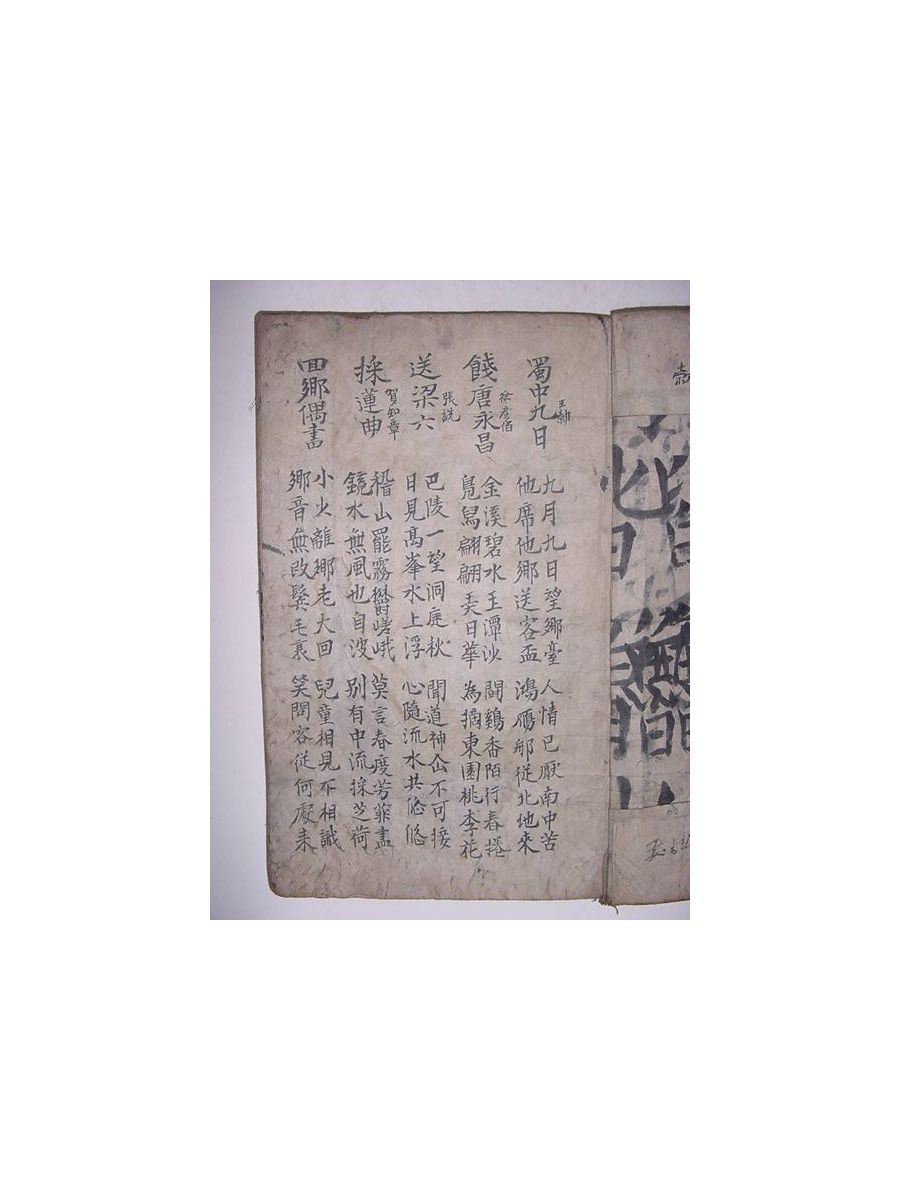 蜀中九日
王勃
九月九日望鄉臺
他席他鄉送客盃
人情已厭南中苦
鴻鴈那從北地來
餞唐永昌
徐彥伯
金溪碧水玉潭沙
鳧舄翩翩奕日華
鬪鷄香陌行春捲
為摘東園桃李花
送梁六
張說
巴陵一望洞庭秋
日見髙峯水上浮
聞道神仚不可接
心隨流水共悠悠
採蓮曲
賀知章
稽山罷霧欝嵯峨
鏡水無風也自波
莫言春度芳菲盡
別有中流採芝荷
回鄉偶書
小少離鄉老大回
鄉音無改鬂毛衰
兒童相見不相識
笑問客從何處来